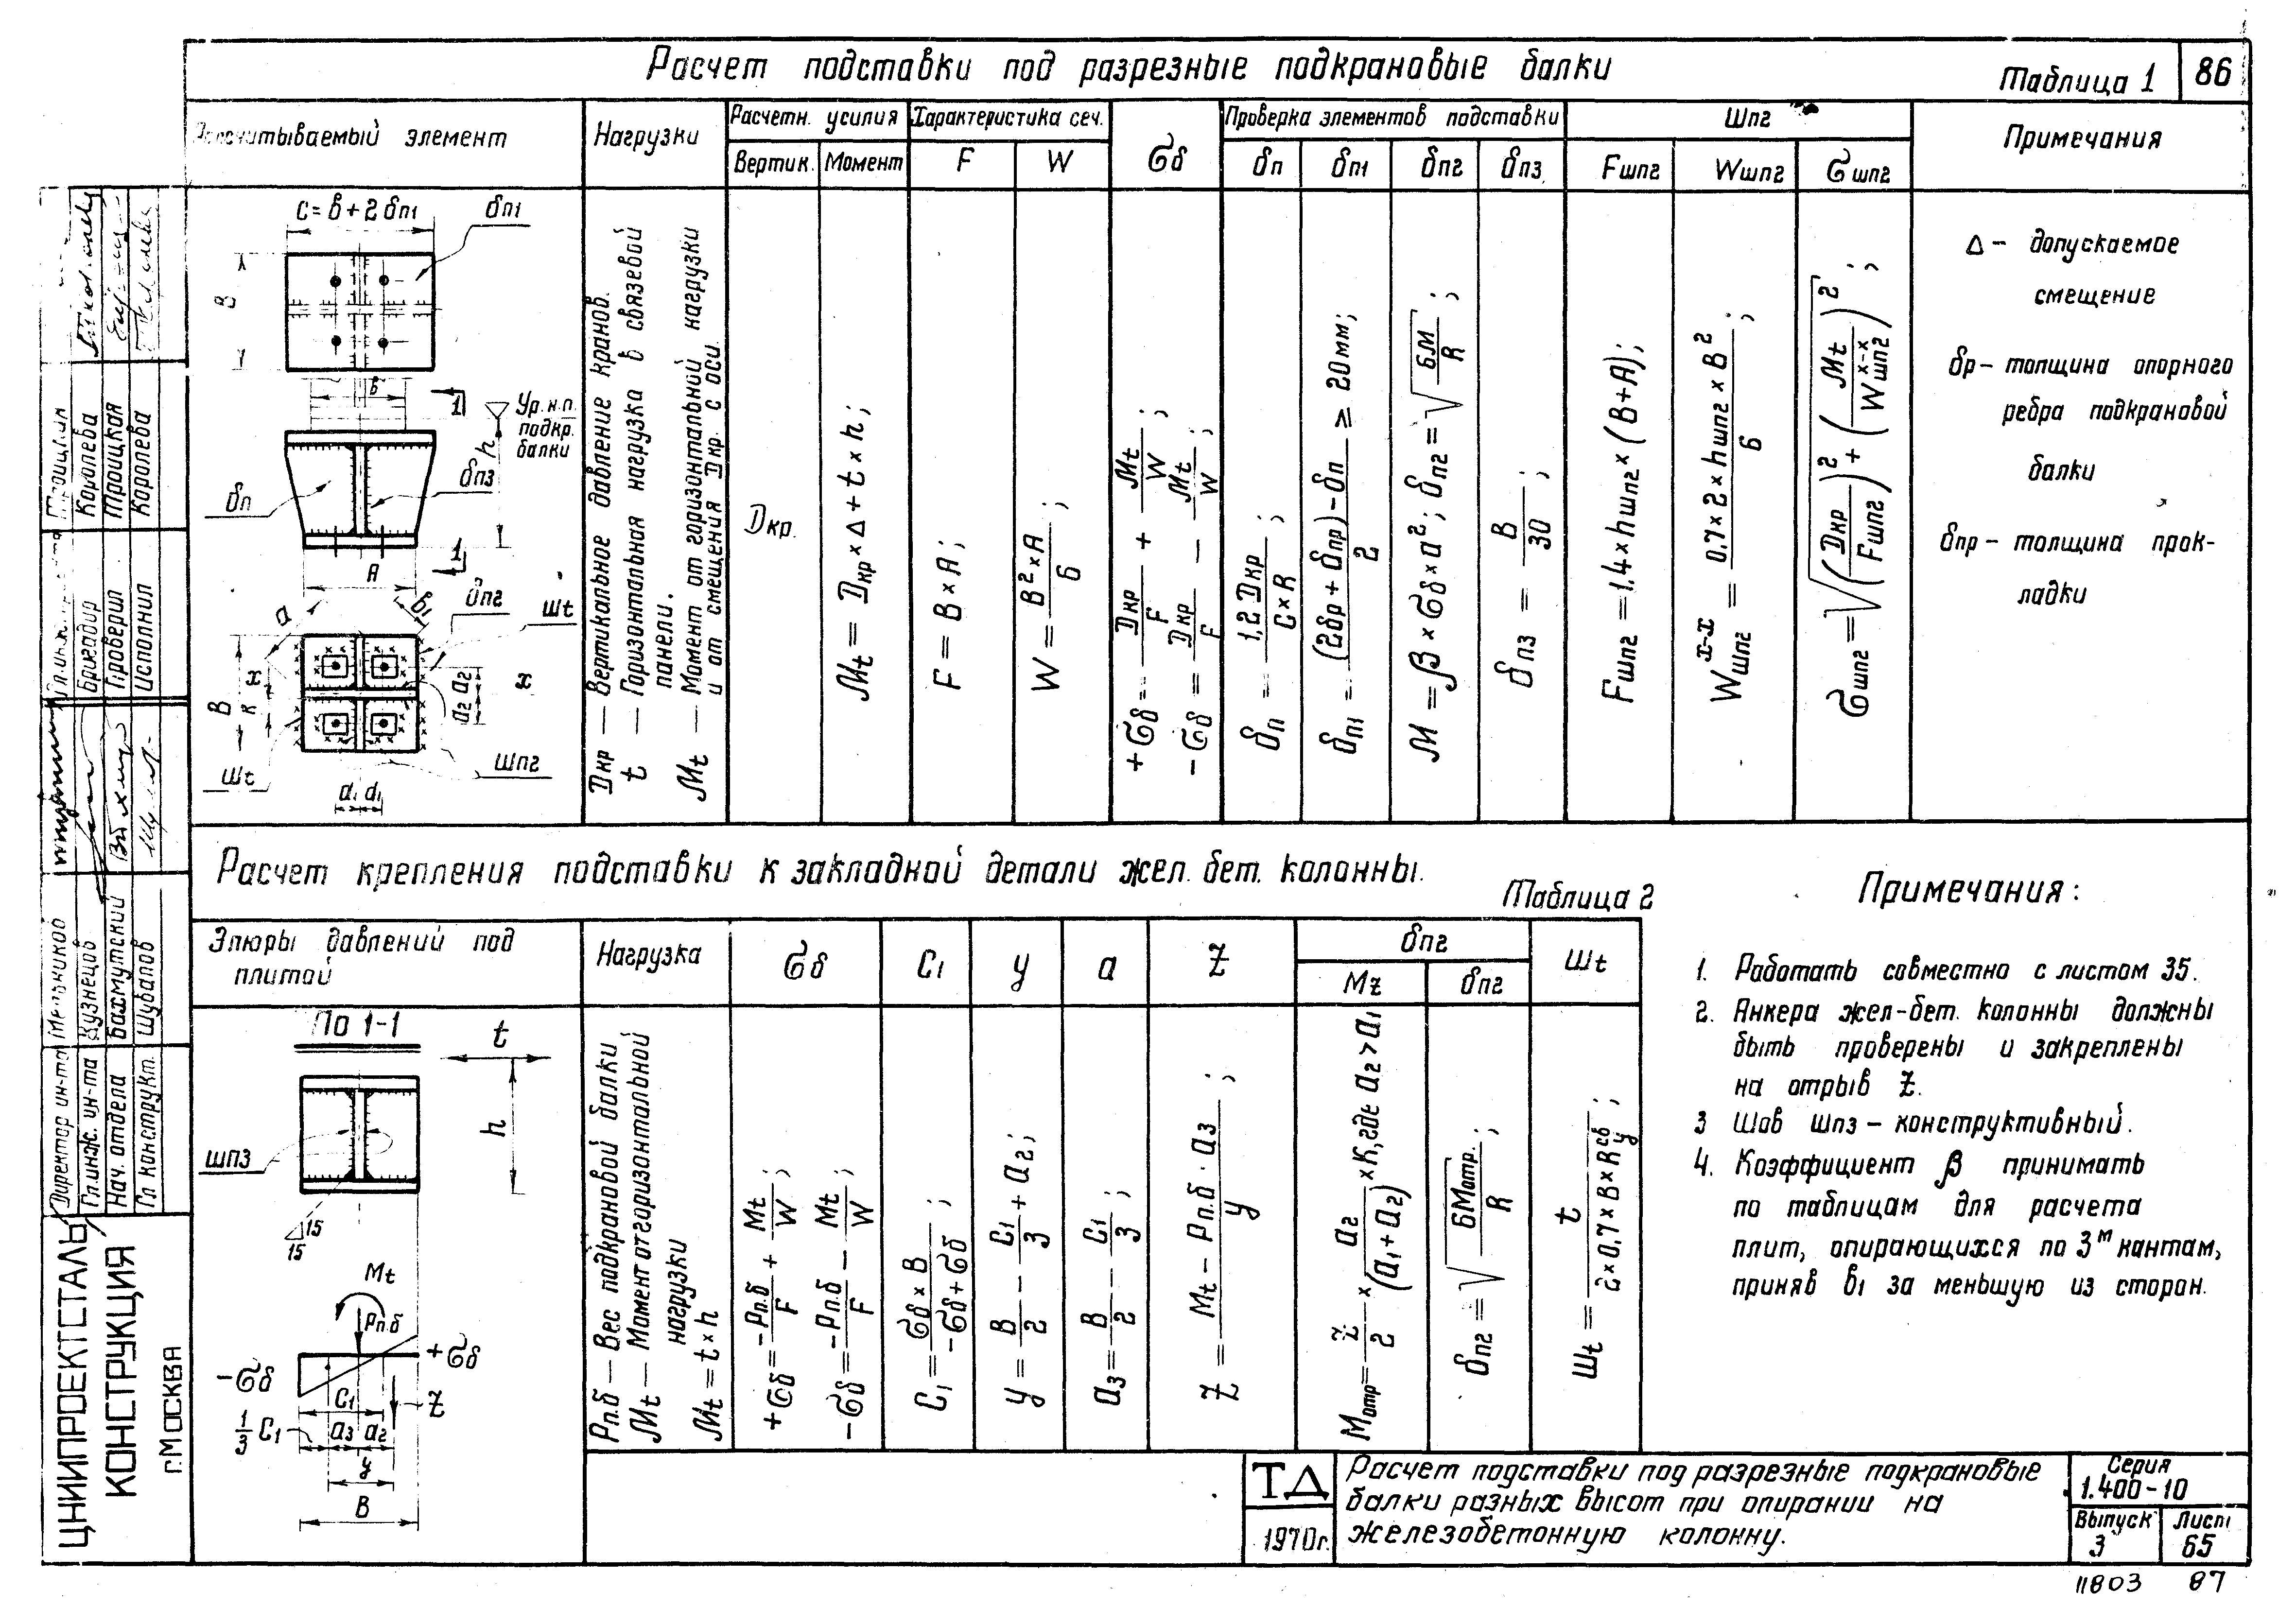 Расчет подставки под разрезные подкрановые балки
Таблица 1
86
Рассчитываемый элемент
Нагрузки
Расчетн. усилия
Вертик.
Момент
Характеристика сеч.
F
W
σб
Проверка элементов подставки
δп
δп1
δп2
δп3
Шп2
Fшп2
Wшп2
σшп2
Примечания
c = в + 2 δп1
δп1
В
в
1
Ур. н.п.
подкр.
балки
h
δп
δп3
1
А
а
в1
δп2
шt
х
В
к
а2
а2
х
шt
шп2
d1 d1
Dкр — Вертикальное давление кранов.
t — Горизонтальная нагрузка в связевой
панели.
Mt — Момент от горизонтальной нагрузки
и от смещения Dкр. с оси.
Dкр.
Mt = Dкр × Δ + t × h;
F = B × A;
W = B² × A / 6;
+σб = Dкр / F + Mt / W;
-σб = Dкр / F − Mt / W;
δп = 1,2 Dкр / C × R;
δп1 = (2δр + δпр) − δп / 2 ≥ 20мм;
M = β × σб × a²; δп2 = √ 6M / R;
δп3 = B / 30;
Fшп2 = 1.4 × hшп2 × (B + A);
Wшп2 x-x = 0,7 × 2 × hшп2 × B² / 6;
σшп2 = √ (Dкр / Fшп2)² + (Mt / Wшп2 x-x)²;
Δ — допускаемое
смещение
δр — толщина опорного
ребра подкрановой
балки
δпр — толщина прок-
ладки
Расчет крепления подставки к закладной детали жел. бет. колонны.
Таблица 2
Эпюры давлений под
плитой
Нагрузка
σб
C1
y
a
Z
δп2
Mz
δп2
шt
По 1-1
t
h
шп3
15
15
Mt
Pп.б
+σб
-σб
C1
Z
1/3 C1
a3 a2
y
B
Pп.б — Вес подкрановой балки
Mt — Момент от горизонтальной
нагрузки
Mt = t × h
+σб = −Pп.б / F + Mt / W;
−σб = −Pп.б / F − Mt / W;
C1 = σб × B / −σб + σб;
y = B / 2 − C1 / 3 + a2;
a3 = B / 2 − C1 / 3;
Z = Mt − Pп.б · a3 / y;
Mотр = Z / 2 × a2 / (a1 + a2) × K, где a2 > a1
δп2 = √ 6Mотр. / R;
шt = t / 2 × 0,7 × B × Rу св;
Примечания:
1. Работать совместно с листом 35.
2. Анкера жел-бет. колонны должны
быть проверены и закреплены
на отрыв Z.
3 Шов шп3 — конструктивный.
4. Коэффициент β принимать
по таблицам для расчета
плит, опирающихся по 3м кантам,
приняв в1 за меньшую из сторон.
Бригадир Королева
Проверил Троицкая
Исполнил Королева
Директор ин-та Мельников
Гл.инж. ин-та Кузнецов
Нач. отдела Бахмутский
Гл конструкт. Шувалов
ЦНИИПРОЕКТСТАЛЬ
КОНСТРУКЦИЯ
г.МОСКВА
ТД
1970г.
Расчет подставки под разрезные подкрановые
балки разных высот при опирании на
железобетонную колонну.
Серия
1.400-10
Выпуск
3
Лист
65
11803 87